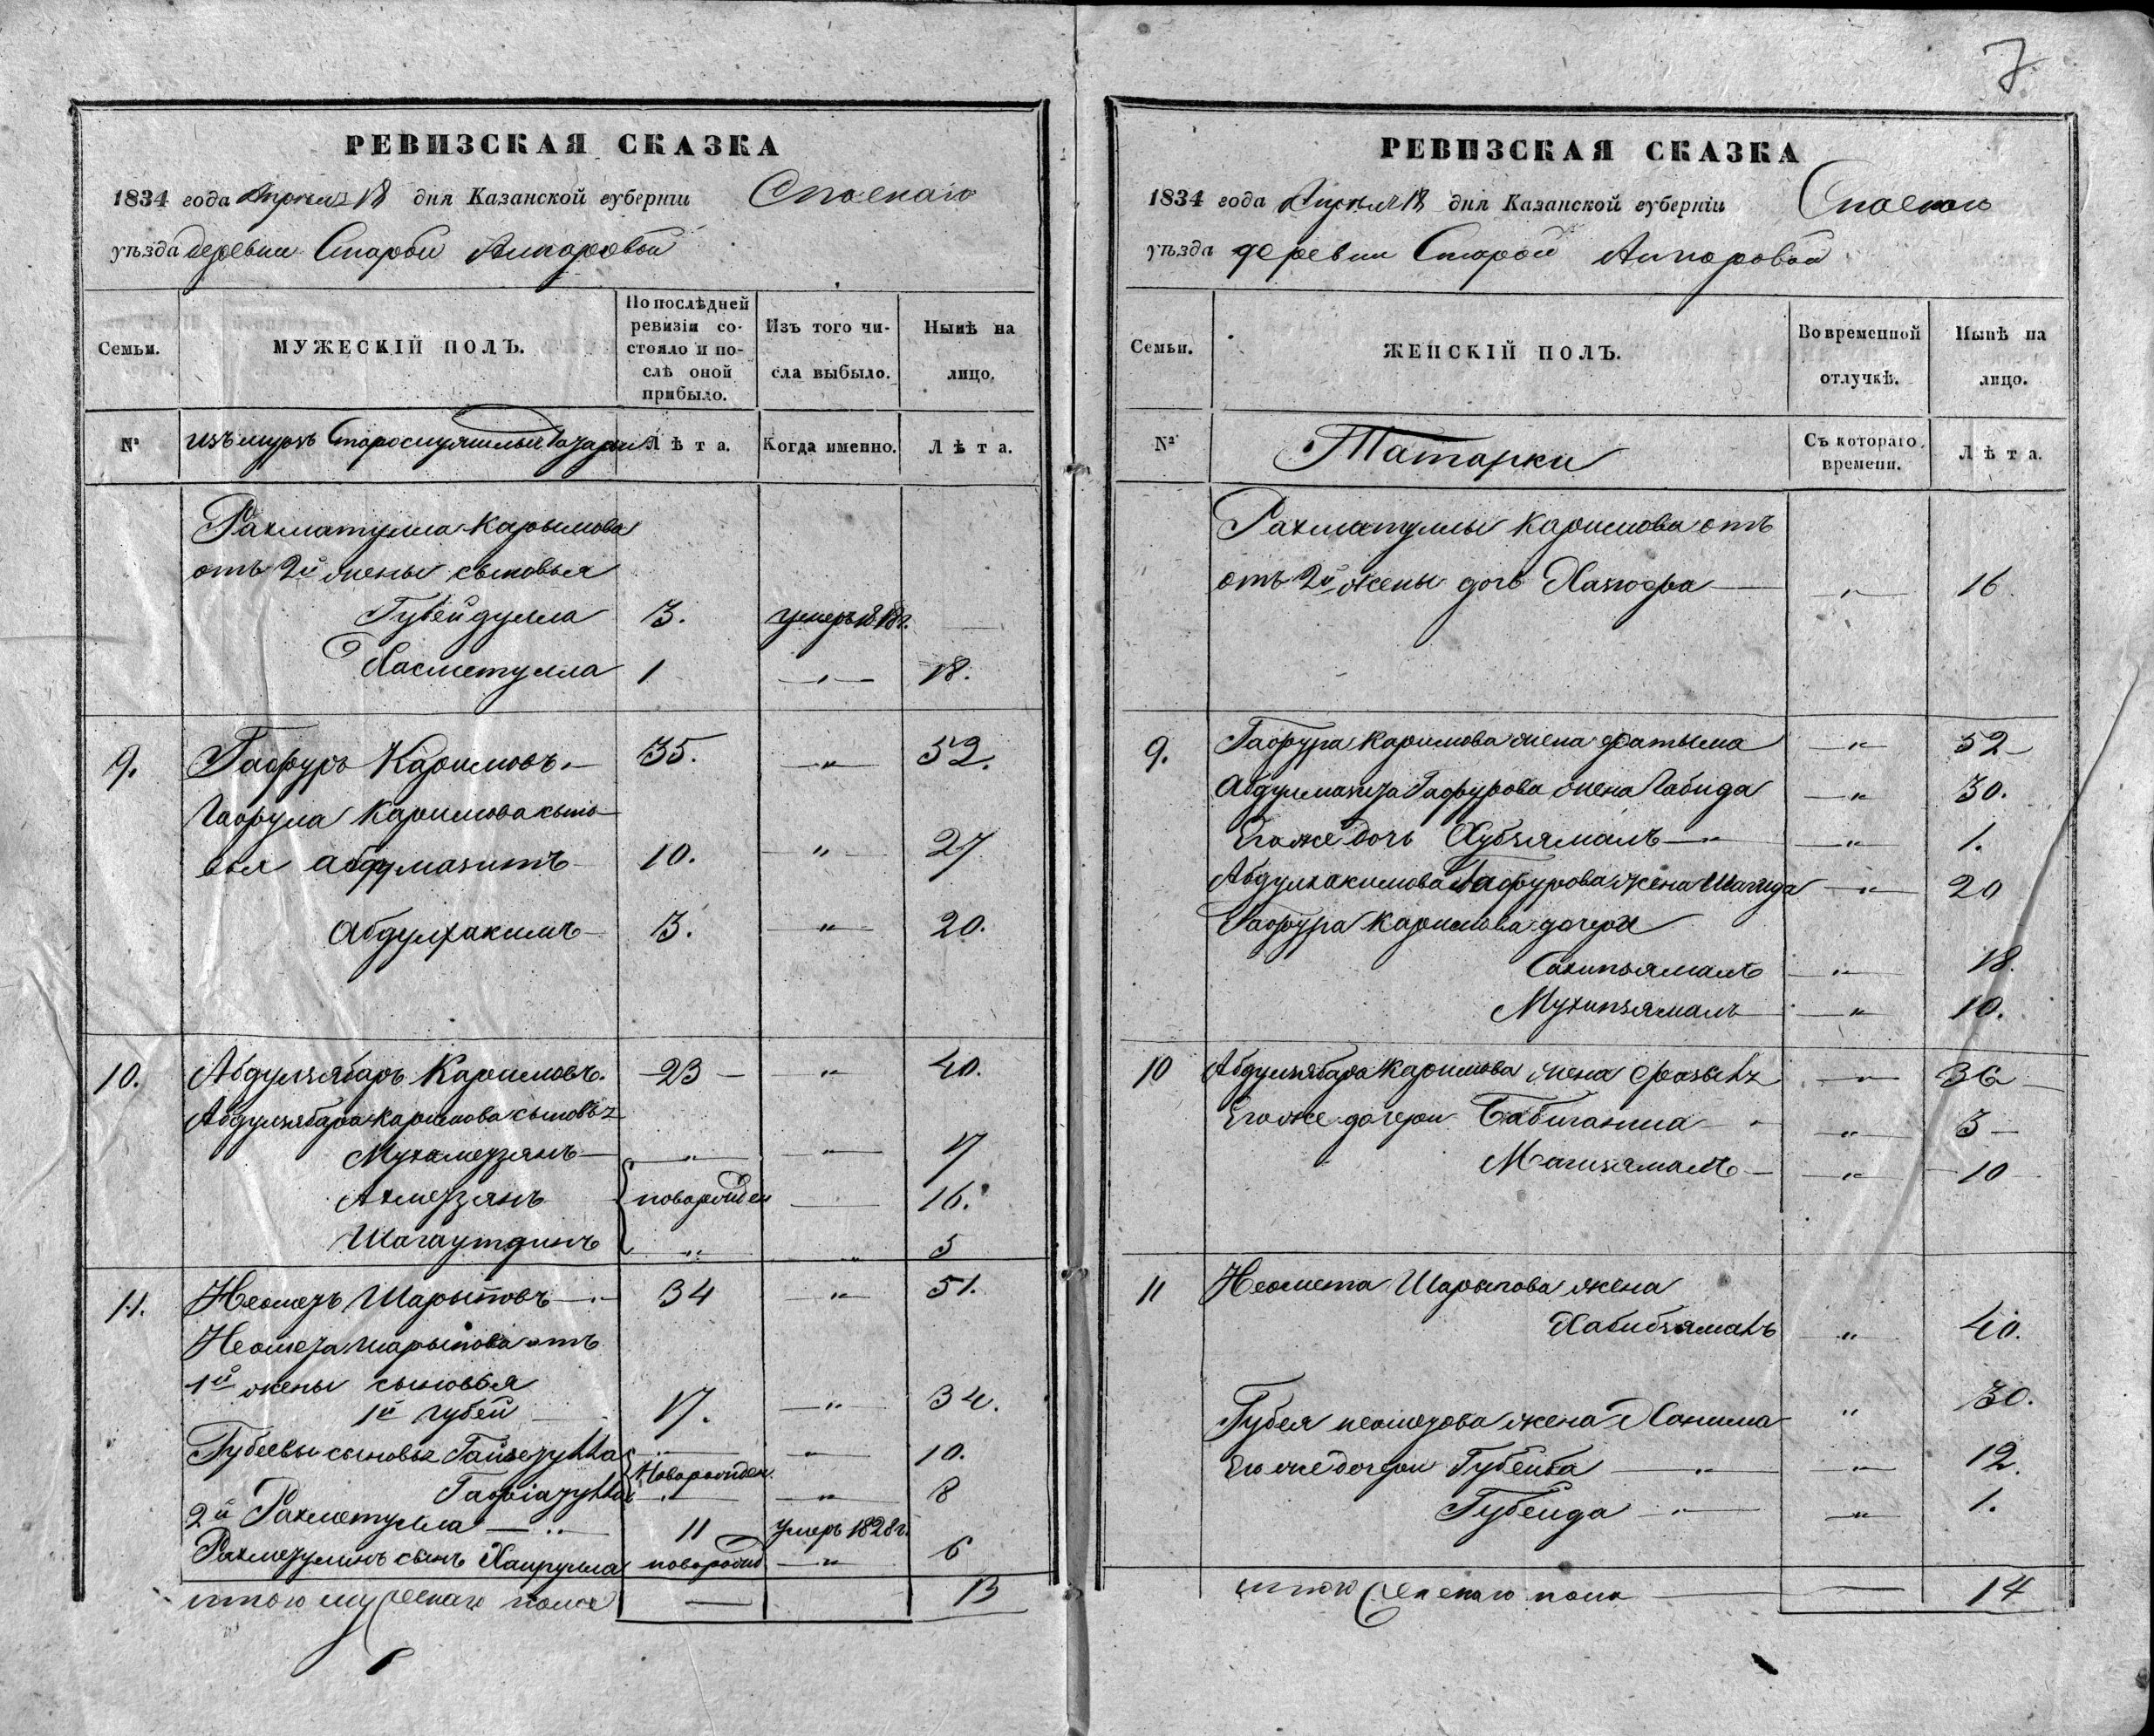 7
РЕВИЗСКАЯ СКАЗКА
1834 года Апреля 18 дня Казанской губернiи Спаскаго
уѣзда деревни Старой Ампаровой
Семьи.
МУЖЕСКIЙ ПОЛЪ.
По послѣдней ревизiи состояло и послѣ оной прибыло.
Изъ того числа выбыло.
Нынѣ на лицо.
№
изъ мурзъ Старослужилыя Татары
Лѣта.
Когда именно.
Лѣта.
Рахматулла Карымова
отъ 2й жены сыновья
Губейдулла 13. умеръ 1818г. —
Хасметулла 1 —„— 18.
9. Гафуръ Каримовъ. — 35. —„— 52.
Гафура Каримова сыно-
вья Абдулмазитъ 10. —„— 27
Абдулхакимъ 3. —„— 20.
10. Абдулзябаръ Каримовъ. 23 — „ 40.
Абдулзябара Каримова сыновья
Мухаметзянъ —„— — 17
Ахметзянъ новорожден — 16.
Шагаутдинъ „ „ 5
11. Неаметъ Шарыповъ 34 —„— 51.
Неамета Шарыпова отъ
1й жены сыновья
1й Губей 17. —„— 34.
Губеевы сыновья Гайзетулла — — 10.
Новорожден.
Гафiатулла — —„— 8
2й Рахметулла 11 умеръ 1828г.
Рахметулинъ сынъ Хайрулла новорожд —„— 6
итого мужескаго пола — 13
РЕВИЗСКАЯ СКАЗКА
1834 года Апреля 18 дня Казанской губернiи Спаскаго
уѣзда деревни Старой Ампаровой
Семьи.
ЖЕНСКIЙ ПОЛЪ.
Во временной отлучкѣ.
Нынѣ на лицо.
№
Татарки
Съ котораго времени.
Лѣта.
Рахматуллы Каримова отъ
отъ 2й жены дочь 16.
9. Гафура Каримова жена Фатыма —„— 52
Абдулмазита Гафурова жена Габида —„— 30.
Его же дочь Хубзямалъ —„— 1.
Абдулхакимова Гафурова жена Шагида —„— 20
Гафура Каримова дочери
Сахипзямалъ —„— 18.
Мухипзямалъ —„— 10.
10 Абдулзябара Каримова жена —„— 36
Его же дочери Бабиганима —„— 3
Магизямалъ —„— 10
11 Неамета Шарыпова жена
Хабибзямалъ —„— 40.
Губея Неаметова жена Ханима „ 30.
Его же дочери Губейба —„— 12.
Губейда —„— 1.
итого женскаго пола — 14